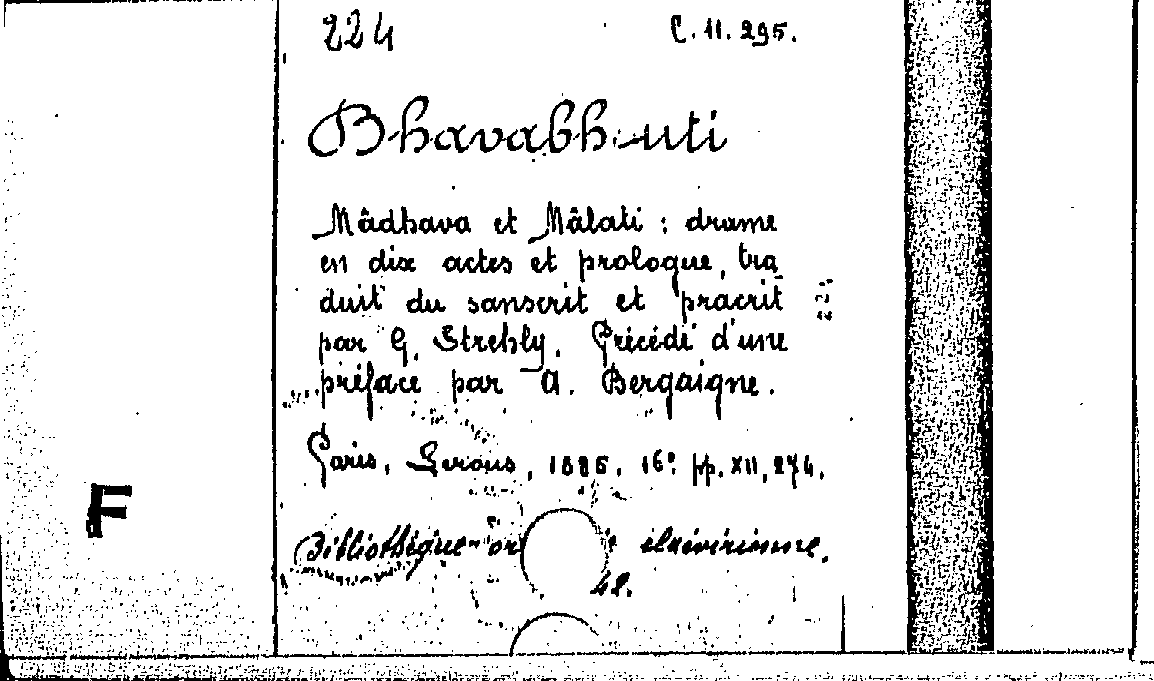 224 C. 11. 295.
Bhavabhuti
Mâdhava et Mâlati : drame
en dix actes et prologue, tra
duit du sanscrit et pracrit
par G. Strehly. Précédé d'une
préface par A. Bergaigne.
Paris, Leroux, 1885. 16º. pp. XII, 274.
Bibliothèque or elzévirienne.
42.
F